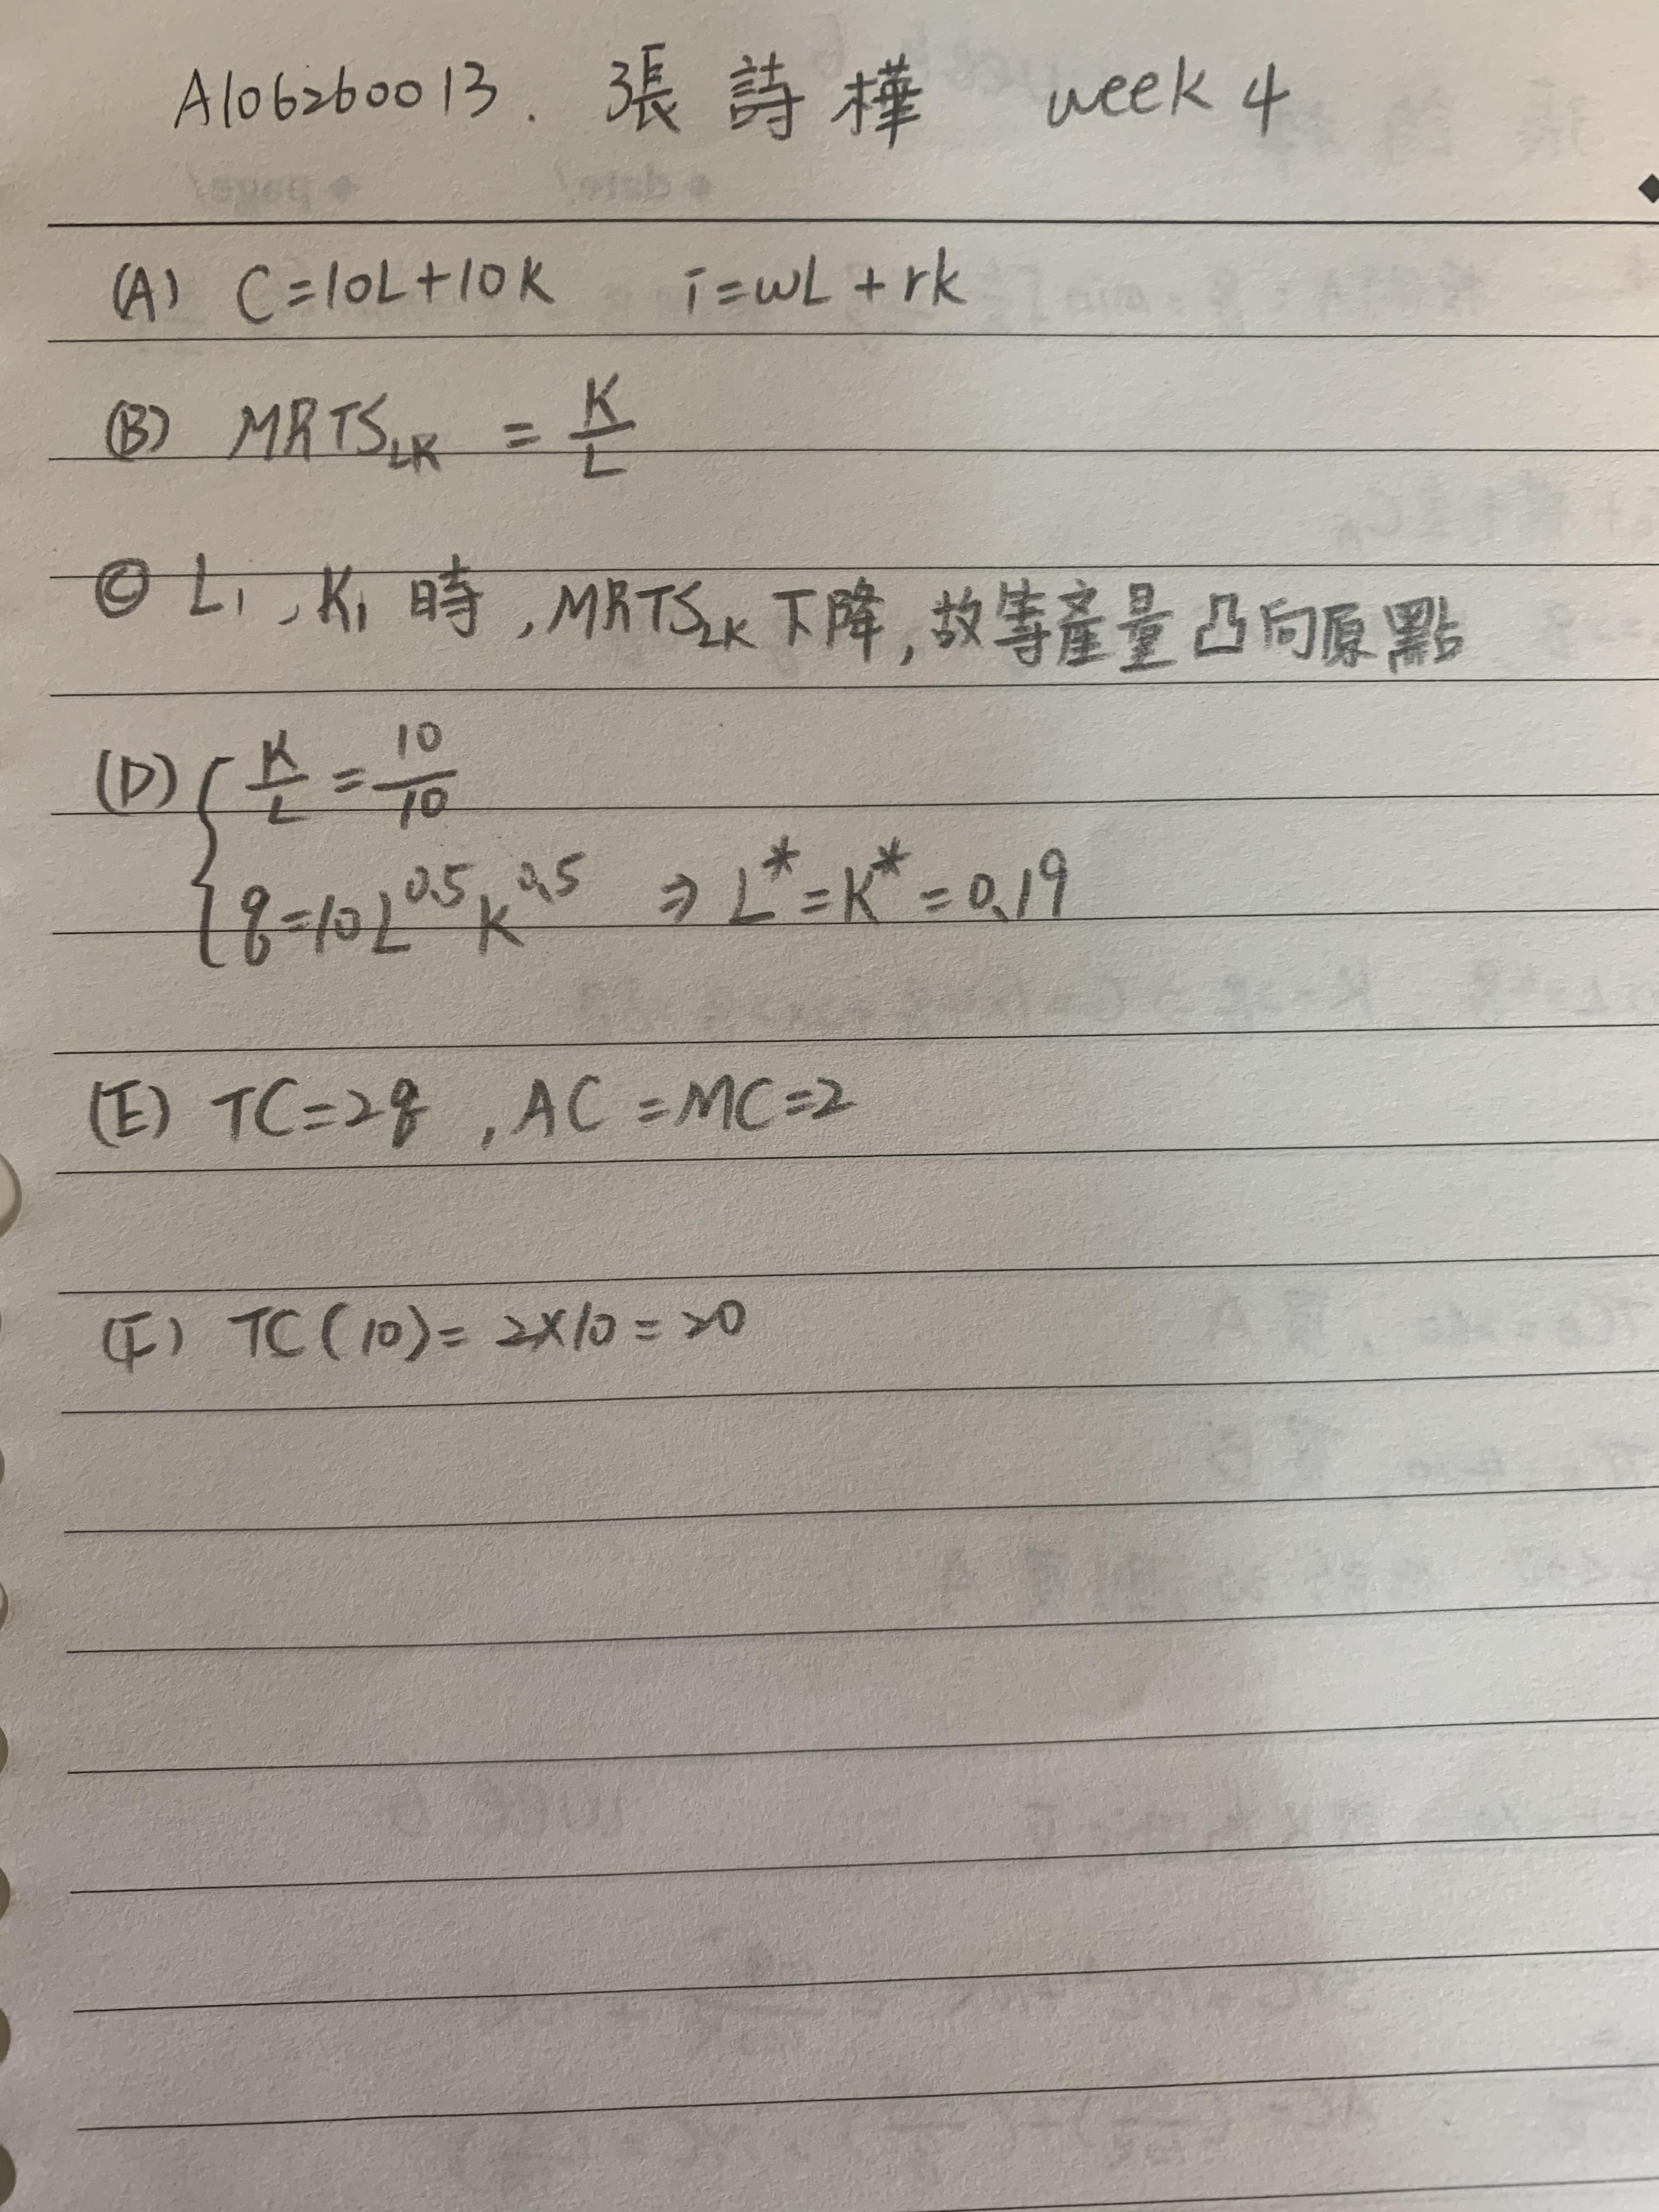 A106260013. 張詩樺 week 4
(A) C=10L+10K i=wL+rk
(B) MRTS_LK = K/L
(C) L1、K1 時,MRTS_LK 下降,故等產量凸向原點
(D) { K/L = 10/10
q=10L^0.5 K^0.5 ⇒ L*=K*=0.19
(E) TC=2q , AC=MC=2
(F) TC(10)=2×10=20